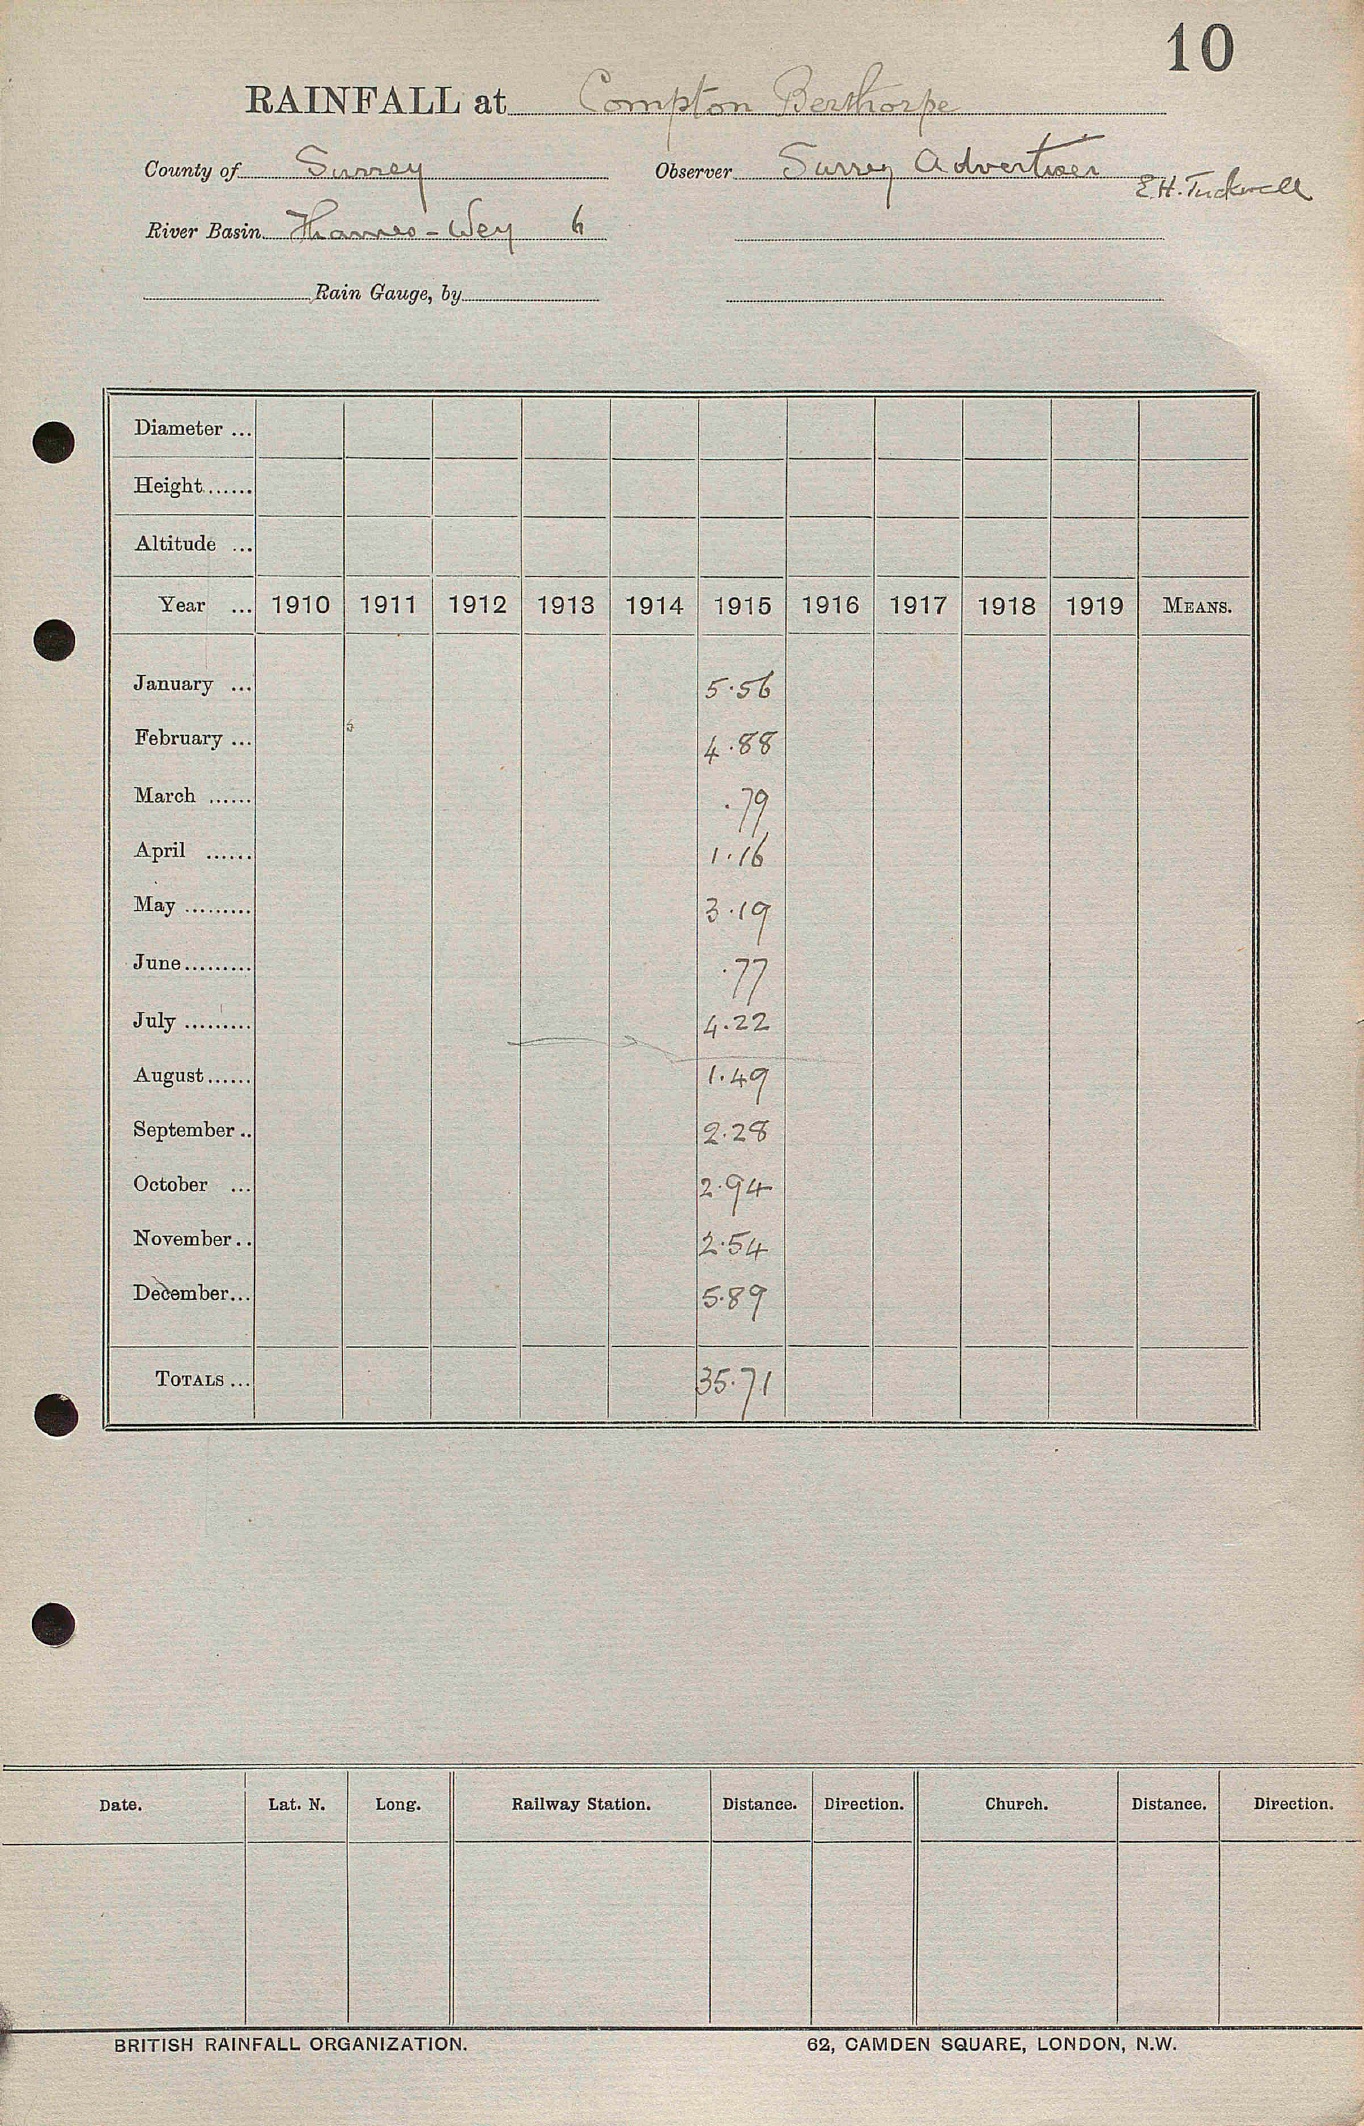 10
RAINFALL at Compton Berthorpe
County of Surrey Observer Surrey Advertiser
E.H. Tuckwell
River Basin Thames-Wey 6
Rain Gauge, by
Diameter ...
Height......
Altitude ...
Year ... 1910 1911 1912 1913 1914 1915 1916 1917 1918 1919 MEANS.
January ... 5.56
February ... 4.88
March ...... .79
April ...... 1.16
May ......... 3.19
June......... .77
July ......... 4.22
August...... 1.49
September .. 2.28
October ... 2.94
November.. 2.54
December... 5.89
TOTALS ... 35.71
Date. Lat. N. Long. Railway Station. Distance. Direction. Church. Distance. Direction.
BRITISH RAINFALL ORGANIZATION. 62, CAMDEN SQUARE, LONDON, N.W.